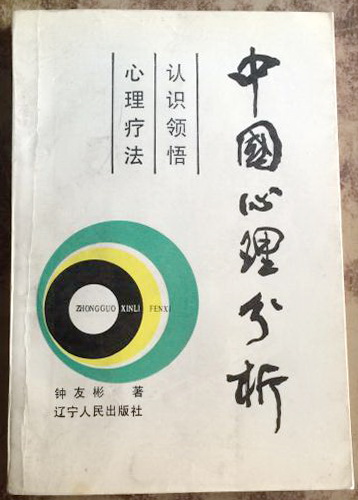 中國心理分析
认识领悟
心理疗法
ZHONGGUO XINLI FENXI
钟友彬 著
辽宁人民出版社